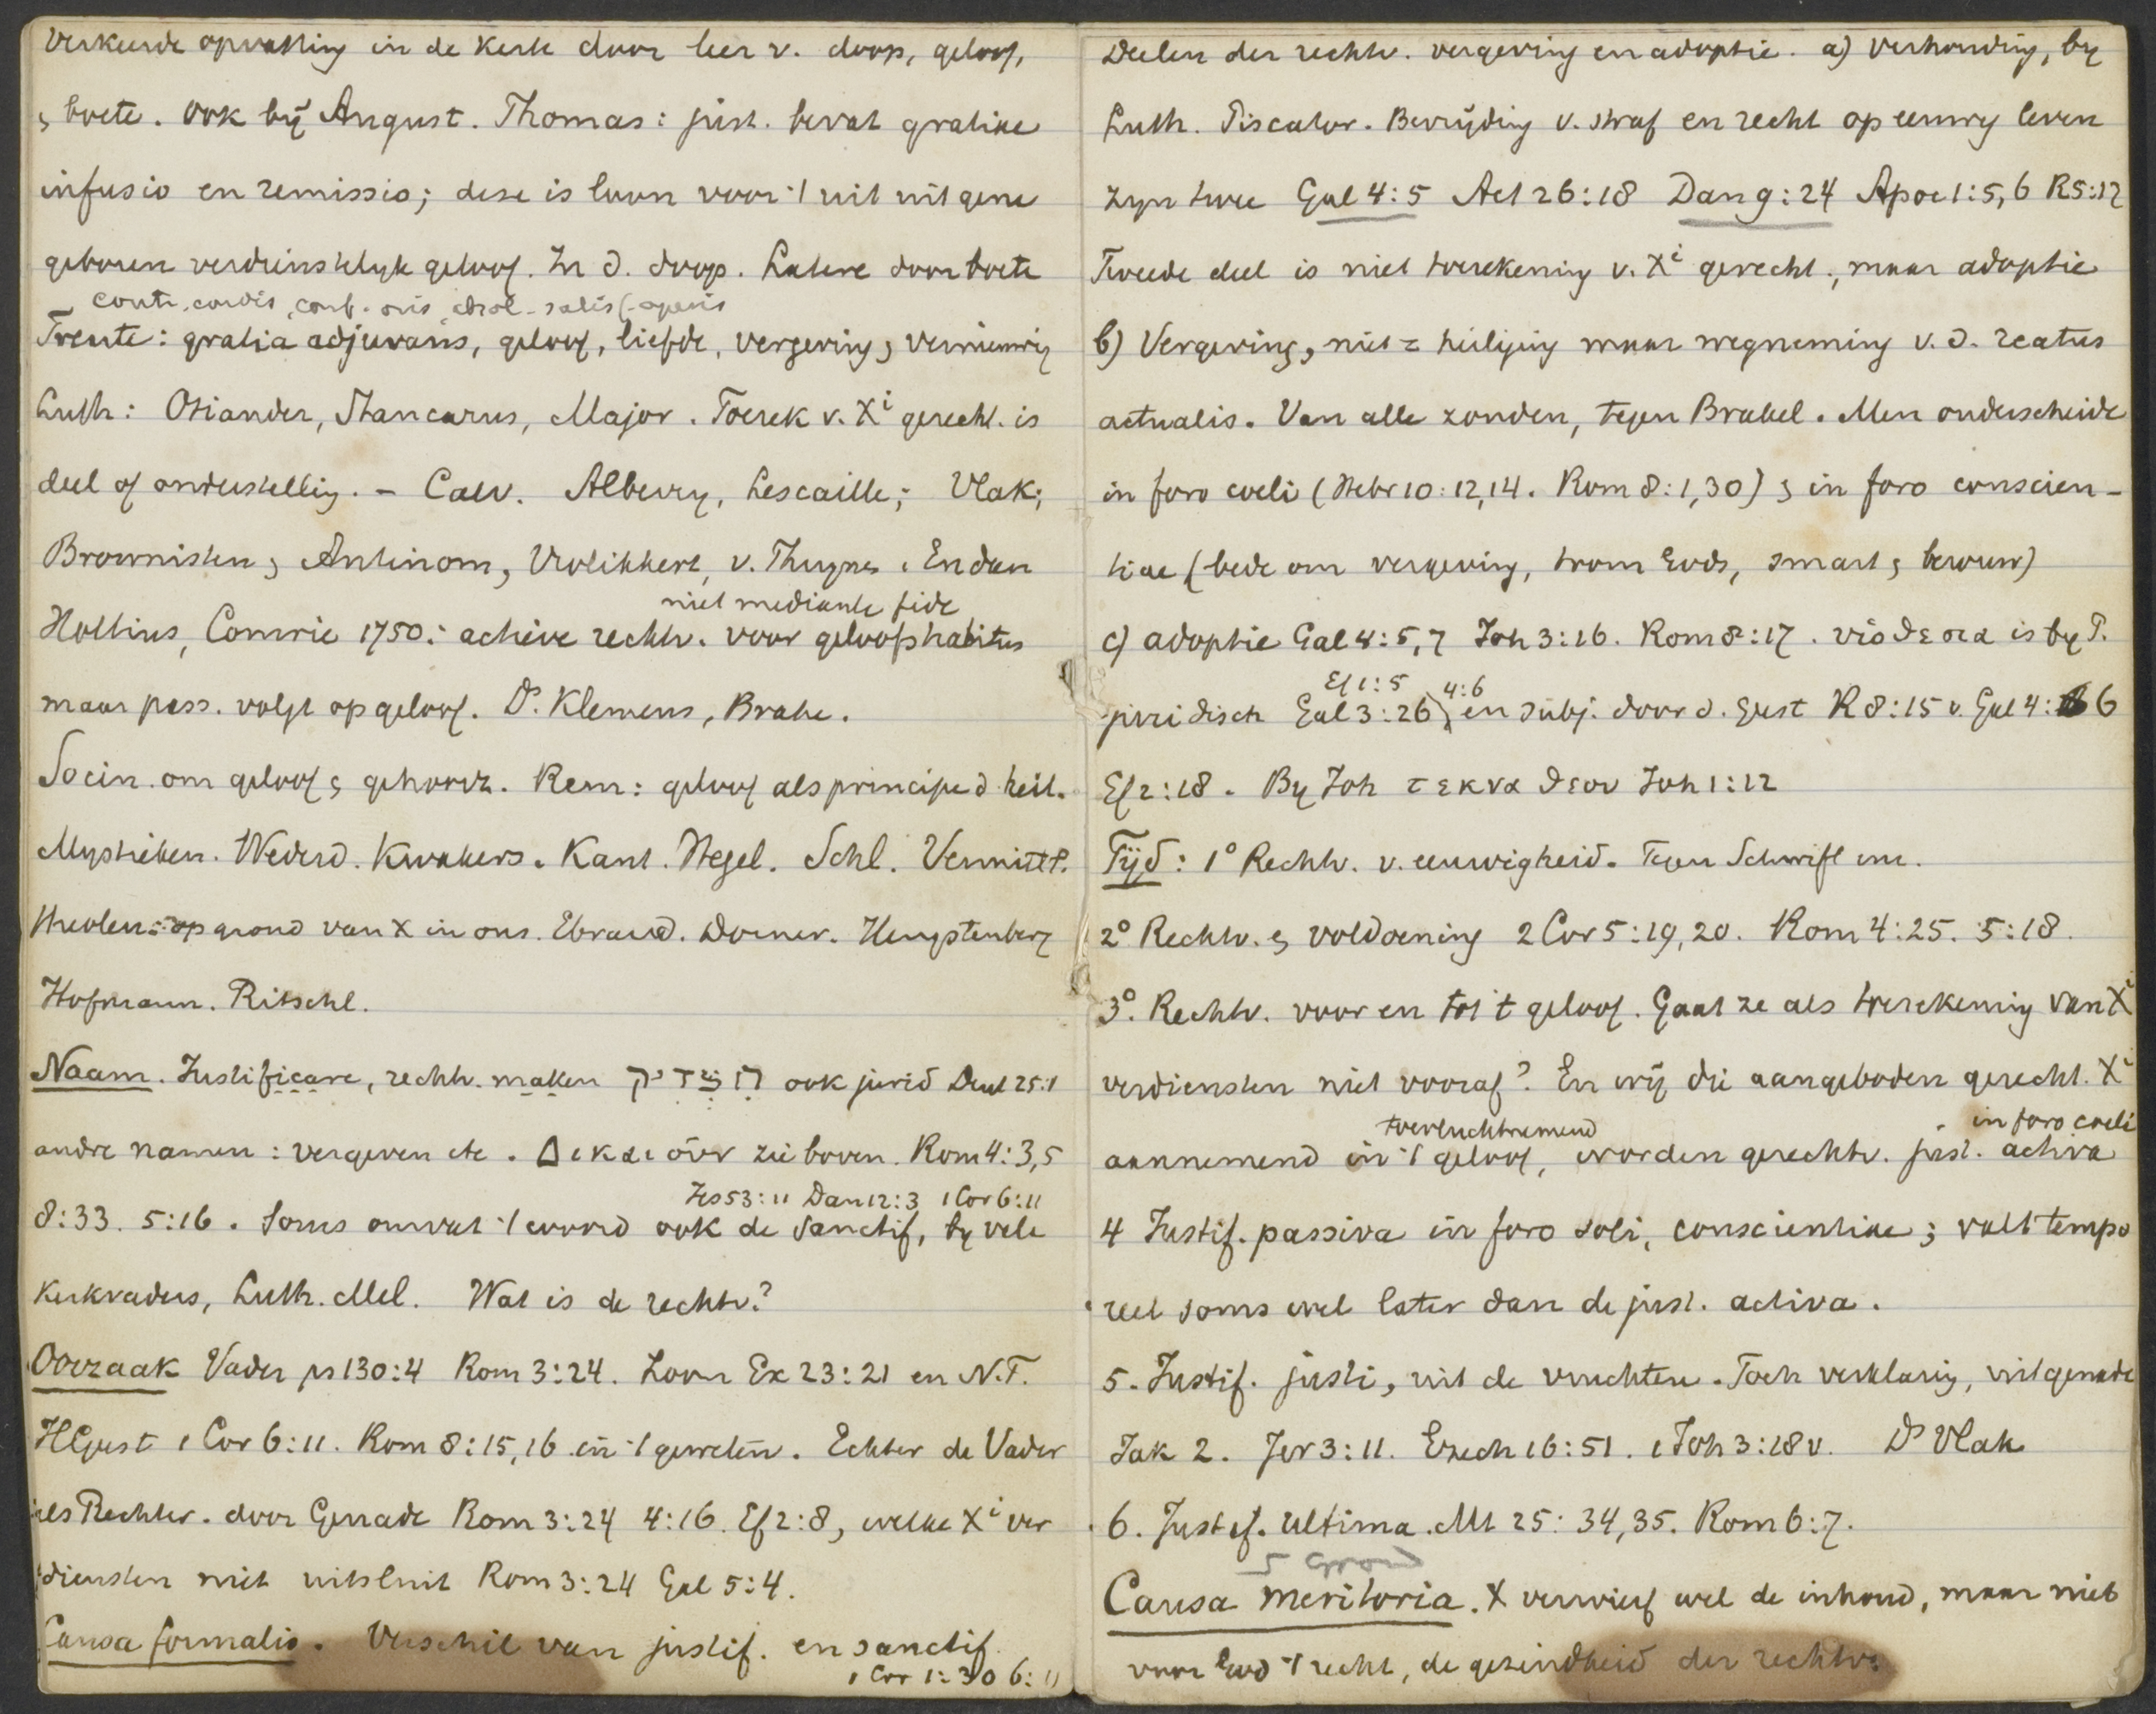 Verkeerde opvatting in de kerk door leer v. doop, geloof,
& boete. Ook bij August. Thomas: just. bevat gratiae
infusio en remissio; deze is loon voor 't uit
geboren verdienstelijk geloof. In d. doop. Latere door boete
contr. cordis, conf. oris, absol - satisf. operis
Trente: gratia adjuvans, geloof, liefde, vergeving & vernieuwing
Luth: Osiander, Stancarus, Major. Toerek v. Xi gerecht. is
deel of onderstelling. - Calv. Alberry, Lescaille; Vlak;
Brownisten & Antinom, Vrolikhert, v. Thuynen. En dan
niet mediante fide
Holtius, Comrie 1750: actieve rechtv. voor geloofshabitus
maar pass. volgt op geloof. Ds. Klemens, Brahe.
Socin. om geloof & gehoorz. Rem: geloof als principe d. heil.
Mystieken. Wederd. Kwakers. Kant. Hegel. Schl. Vermittl.
theolen: op grond van X in ons. Ebrard. Dorner. Hengstenberg
Hofmann. Ritschl.
Naam. Justificare, rechtv. maken הצדיק ook jurid Deut 25:1
andre namen: vergeven etc. Δικαιουν zie boven. Rom 4:3,5
Jes 53:11 Dan 12:3 1 Cor 6:11
8:33. 5:16. Soms omvat 't woord ook de sanctif, by vele
kerkvaders, Luth. Mel. Wat is de rechtv.?
Oorzaak Vader ps 130:4 Rom 3:24. Zoon Ex 23:21 en N.T.
HGeest 1 Cor 6:11. Rom 8:15,16 in 't geweten. Echter de Vader
als Rechter. door Genade Rom 3:24 4:16. Ef 2:8, welke Xi ver
diensten niet uitsluit Rom 3:24 Gal 5:4.
Causa formalis. Verschil van justif. en sanctif.
1 Cor 1:30 6:11
Deelen der rechtv. vergeving en adoptie. a) verhouding, by
Luth. Piscator. Bevrijding v. straf en recht op eeuwig leven
zyn twee Gal 4:5 Act 26:18 Dan 9:24 Apoc 1:5,6 R5:17
Tweede deel is niet toerekening v. Xi gerecht., maar adoptie
b) Vergeving, niet = heiliging maar wegneming v. d. reatus
actualis. Van alle zonden, tegen Brakel. Men onderscheide
in foro coeli (Hebr 10:12,14. Rom 8:1,30) & in foro conscien-
tiae (bede om vergeving, toorn Gods, smart & berouw)
c) adoptie Gal 4:5,7 Joh 3:16. Rom 8:17. υιοθεσια is by P.
Ef 1:5 4:6
juridisch Gal 3:26 en subj. door d. Geest R 8:15 v. Gal 4:6
Ef 2:18. By Joh τεκνα θεου Joh 1:12
Tijd: 1° Rechtv. v. eeuwigheid. Tegen Schwift enz.
2° Rechtv. & voldoening 2 Cor 5:19,20. Rom 4:25. 5:18.
3°. Rechtv. voor en tot 't geloof. Gaat ze als toerekening van Xi
verdiensten niet vooraf? En wij die aangeboden gerecht. Xi
toevluchtnemend in foro coeli
aannemend in 't geloof, worden gerechtv. just. activa
4 Justif. passiva in foro soli, conscientiae; valt tempo
reel soms wel later dan de just. activa.
5. Justif. justi, uit de vruchten. Toch verklaring, uit genade
Jak 2. Jer 3:11. Ezech 16:51. 1 Joh 3:18 v. Ds Vlak
6. Justif. Ultima. Mt 25:34,35. Rom 6:7.
5 Grond
Causa meritoria. X verwierf wel de inhoud, maar niet
voor God 't recht, de gezindheid der rechtv.